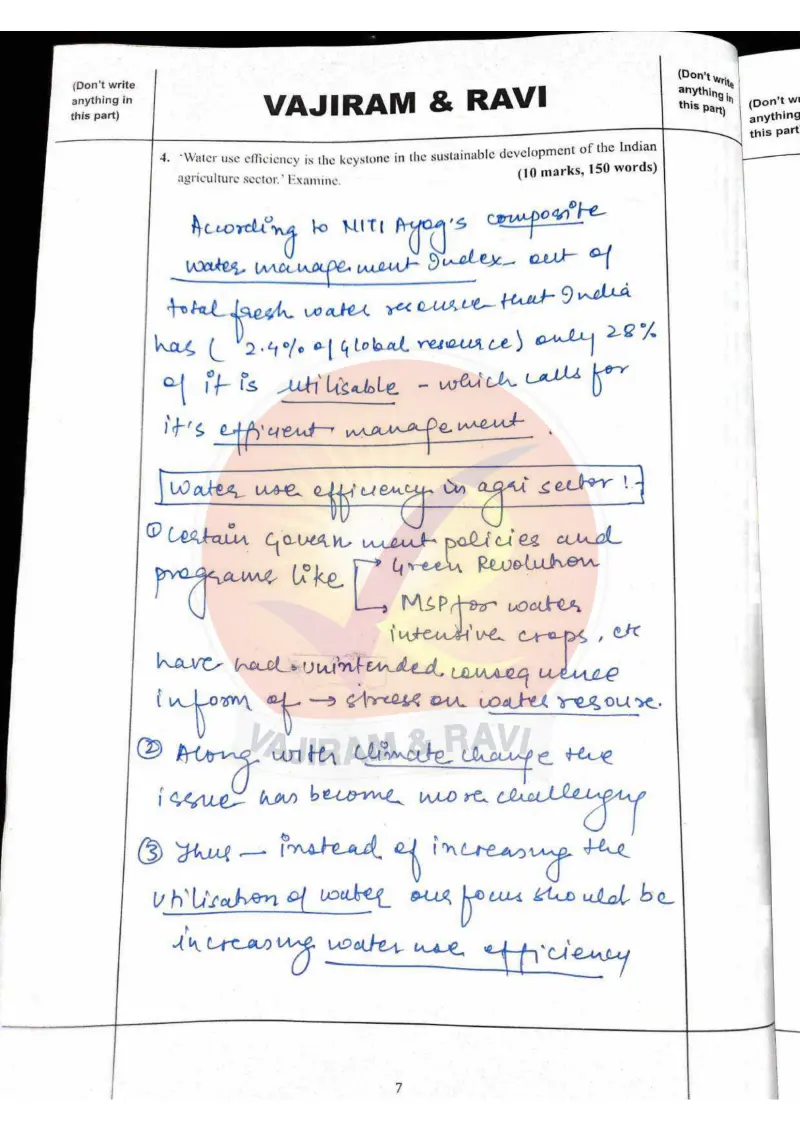 (Don't write
anything in
this part)
VAJIRAM & RAVI
(Don't write
anything in
this part)
(Don't wr
anything
this part
4. 'Water use efficiency is the keystone in the sustainable development of the Indian
agriculture sector.' Examine.
(10 marks, 150 words)
According to NITI Ayog's composite
water management Index out of
total fresh water resource that India
has ( 2.4% of Global resource) only 28%
of it is utilisable - which calls for
it's efficient management.
Water use efficiency in agri sector :-
① Certain Government policies and
programs like → Green Revolution
→ MSP for water
intensive crops, etc
have had unintended consequence
in form of → stress on water resource.
② Along with climate change the
issue has become more challenging
③ Thus — instead of increasing the
utilisation of water our focus should be
increasing water use efficiency
VAJIRAM & RAVI
7